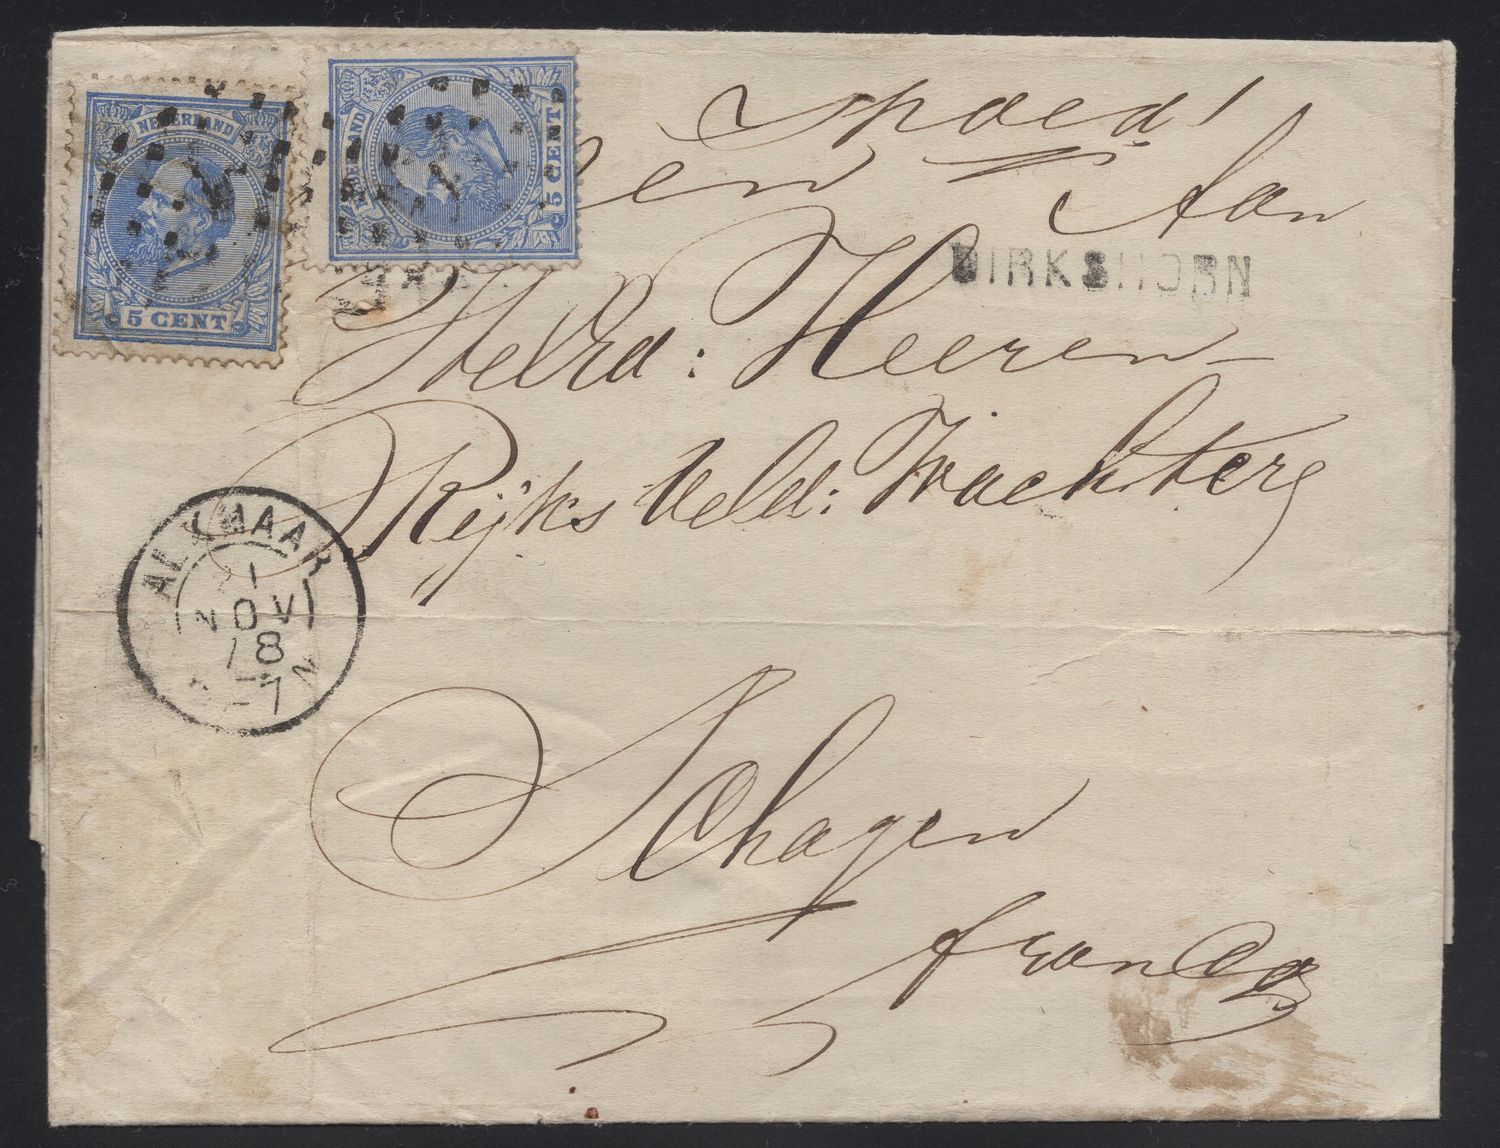 NEDERLAND
5 CENT
5 CENT
Spoed!
en Aan
DIRKSHORN
WelEd: Heeren
Rijks Veld: Wachters
ALKMAAR
21
NOV
78
-7 N
Schagen
franco